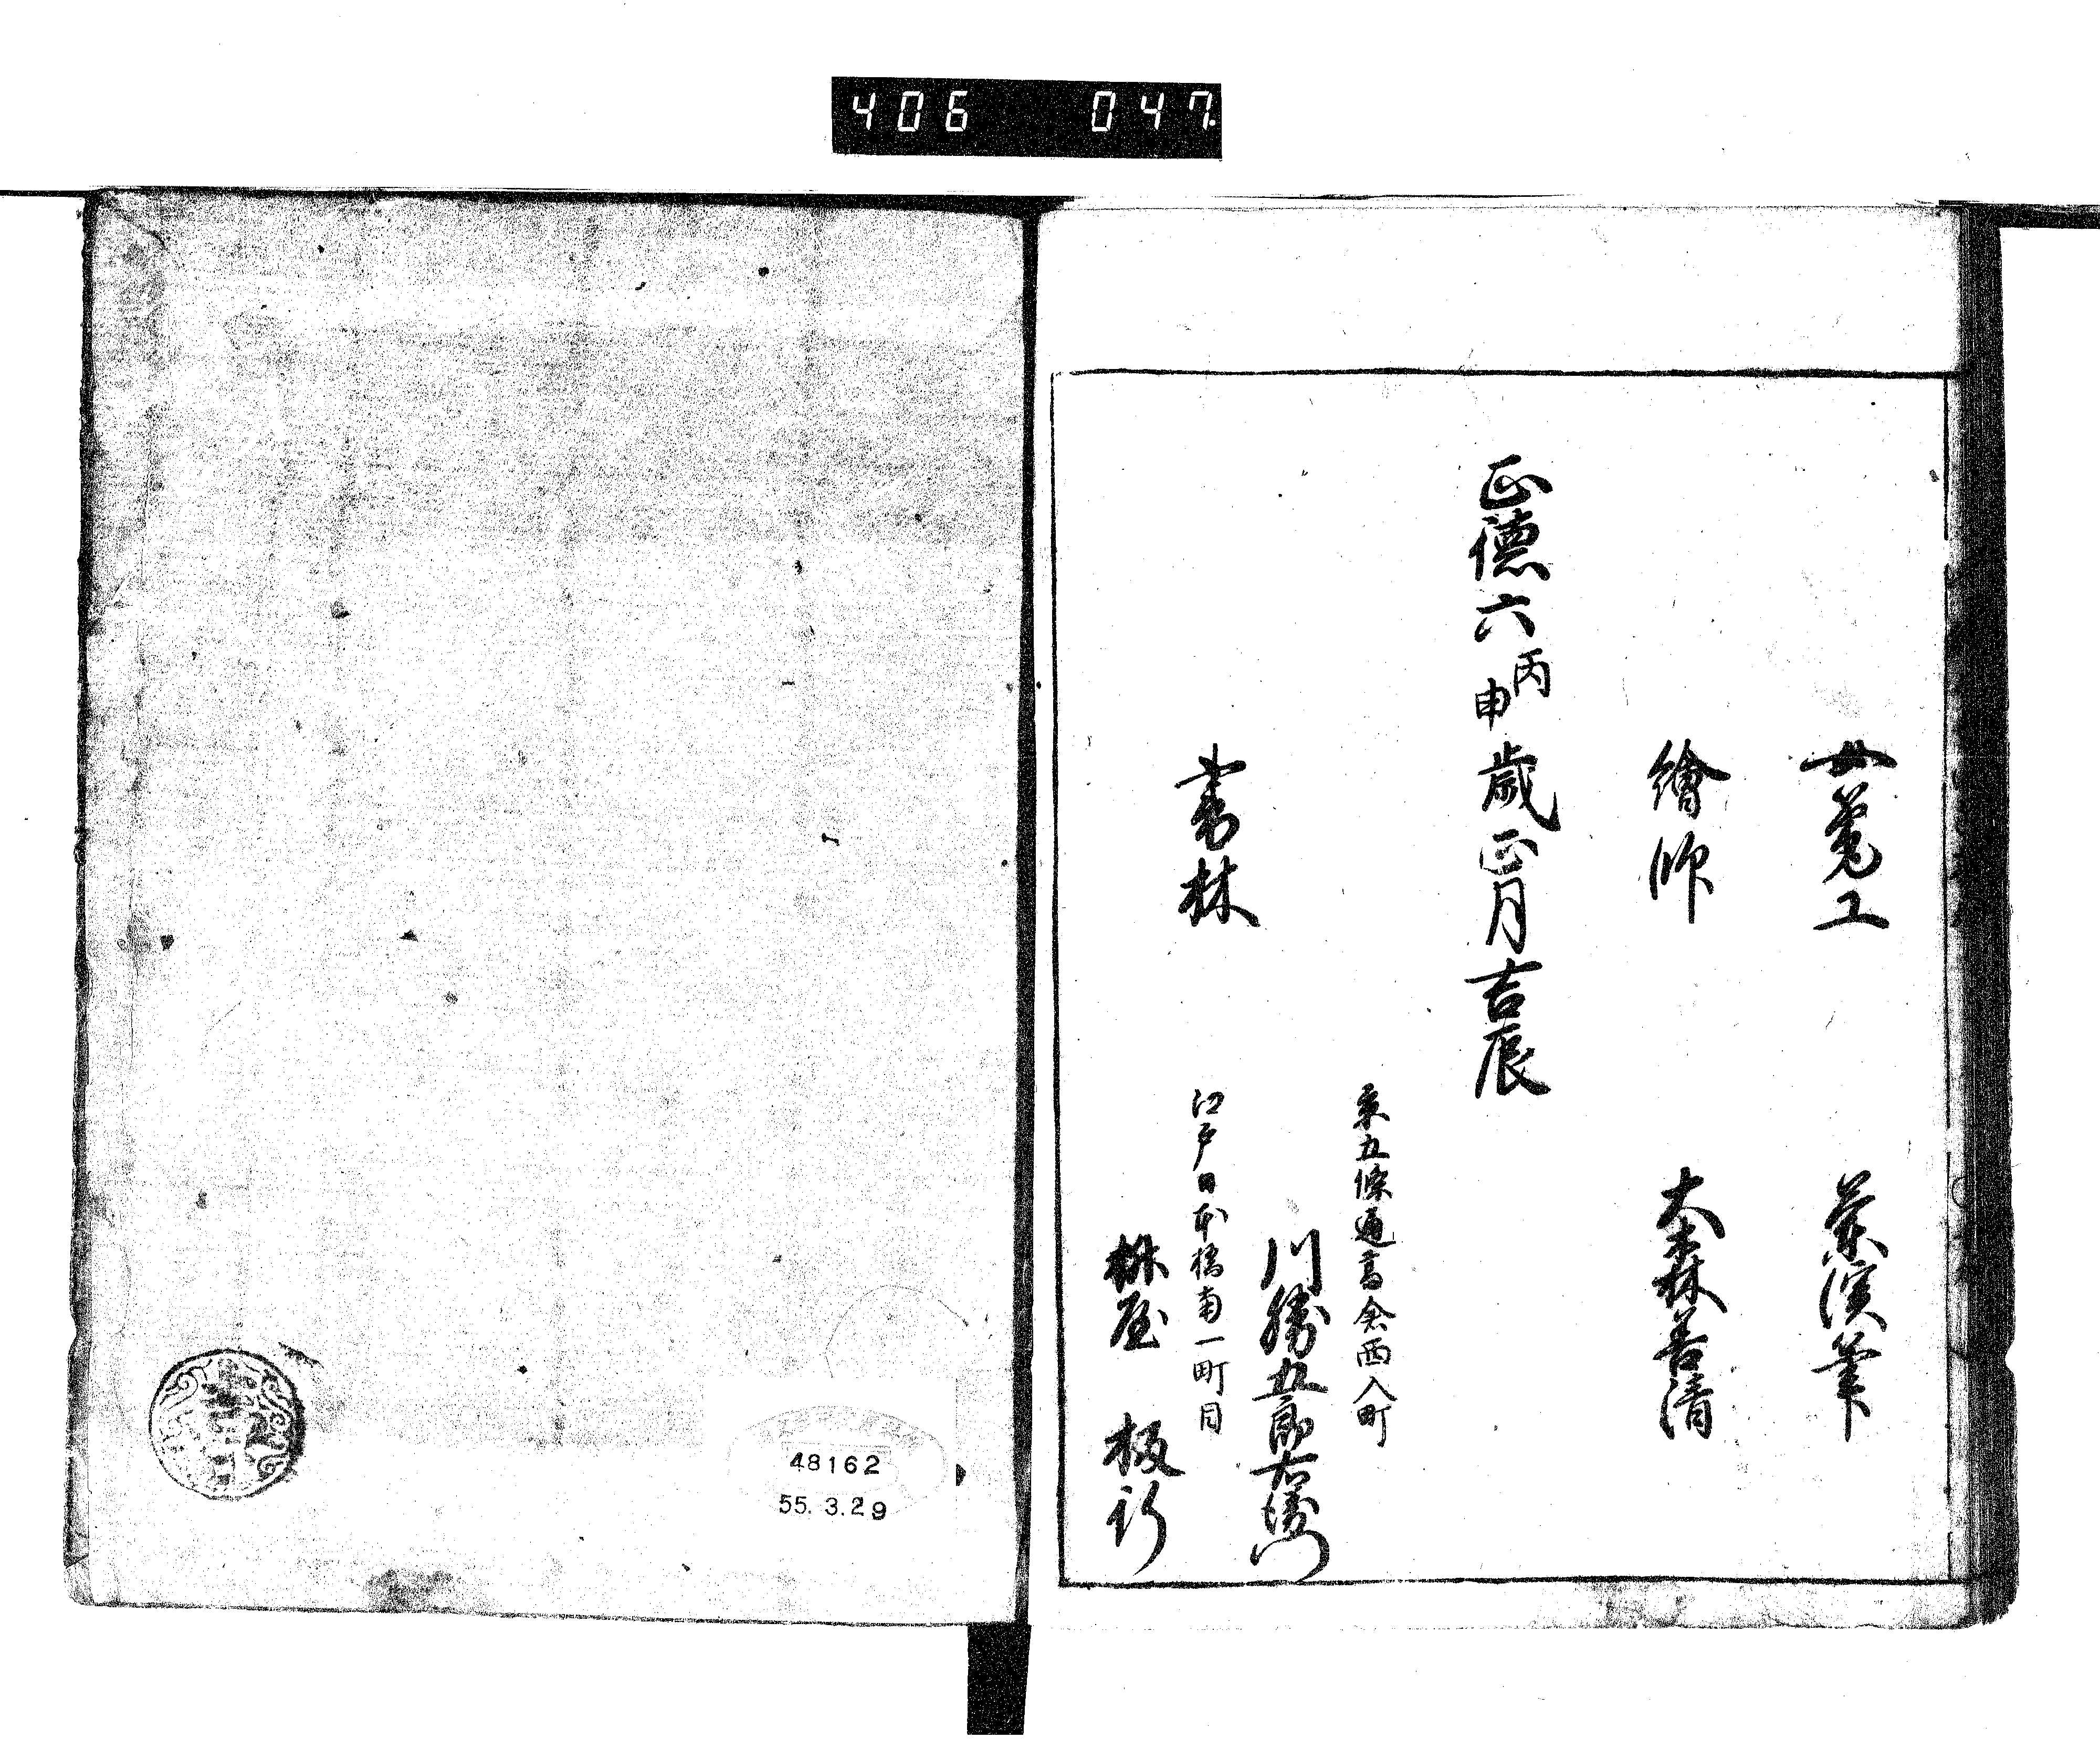 406 047
繪師 大森善清
正德六丙申歳正月吉辰
京五條通高倉西入町
書林 川勝五郎右衛門
江戸日本橋南一町目
板行
48162
55.3.29